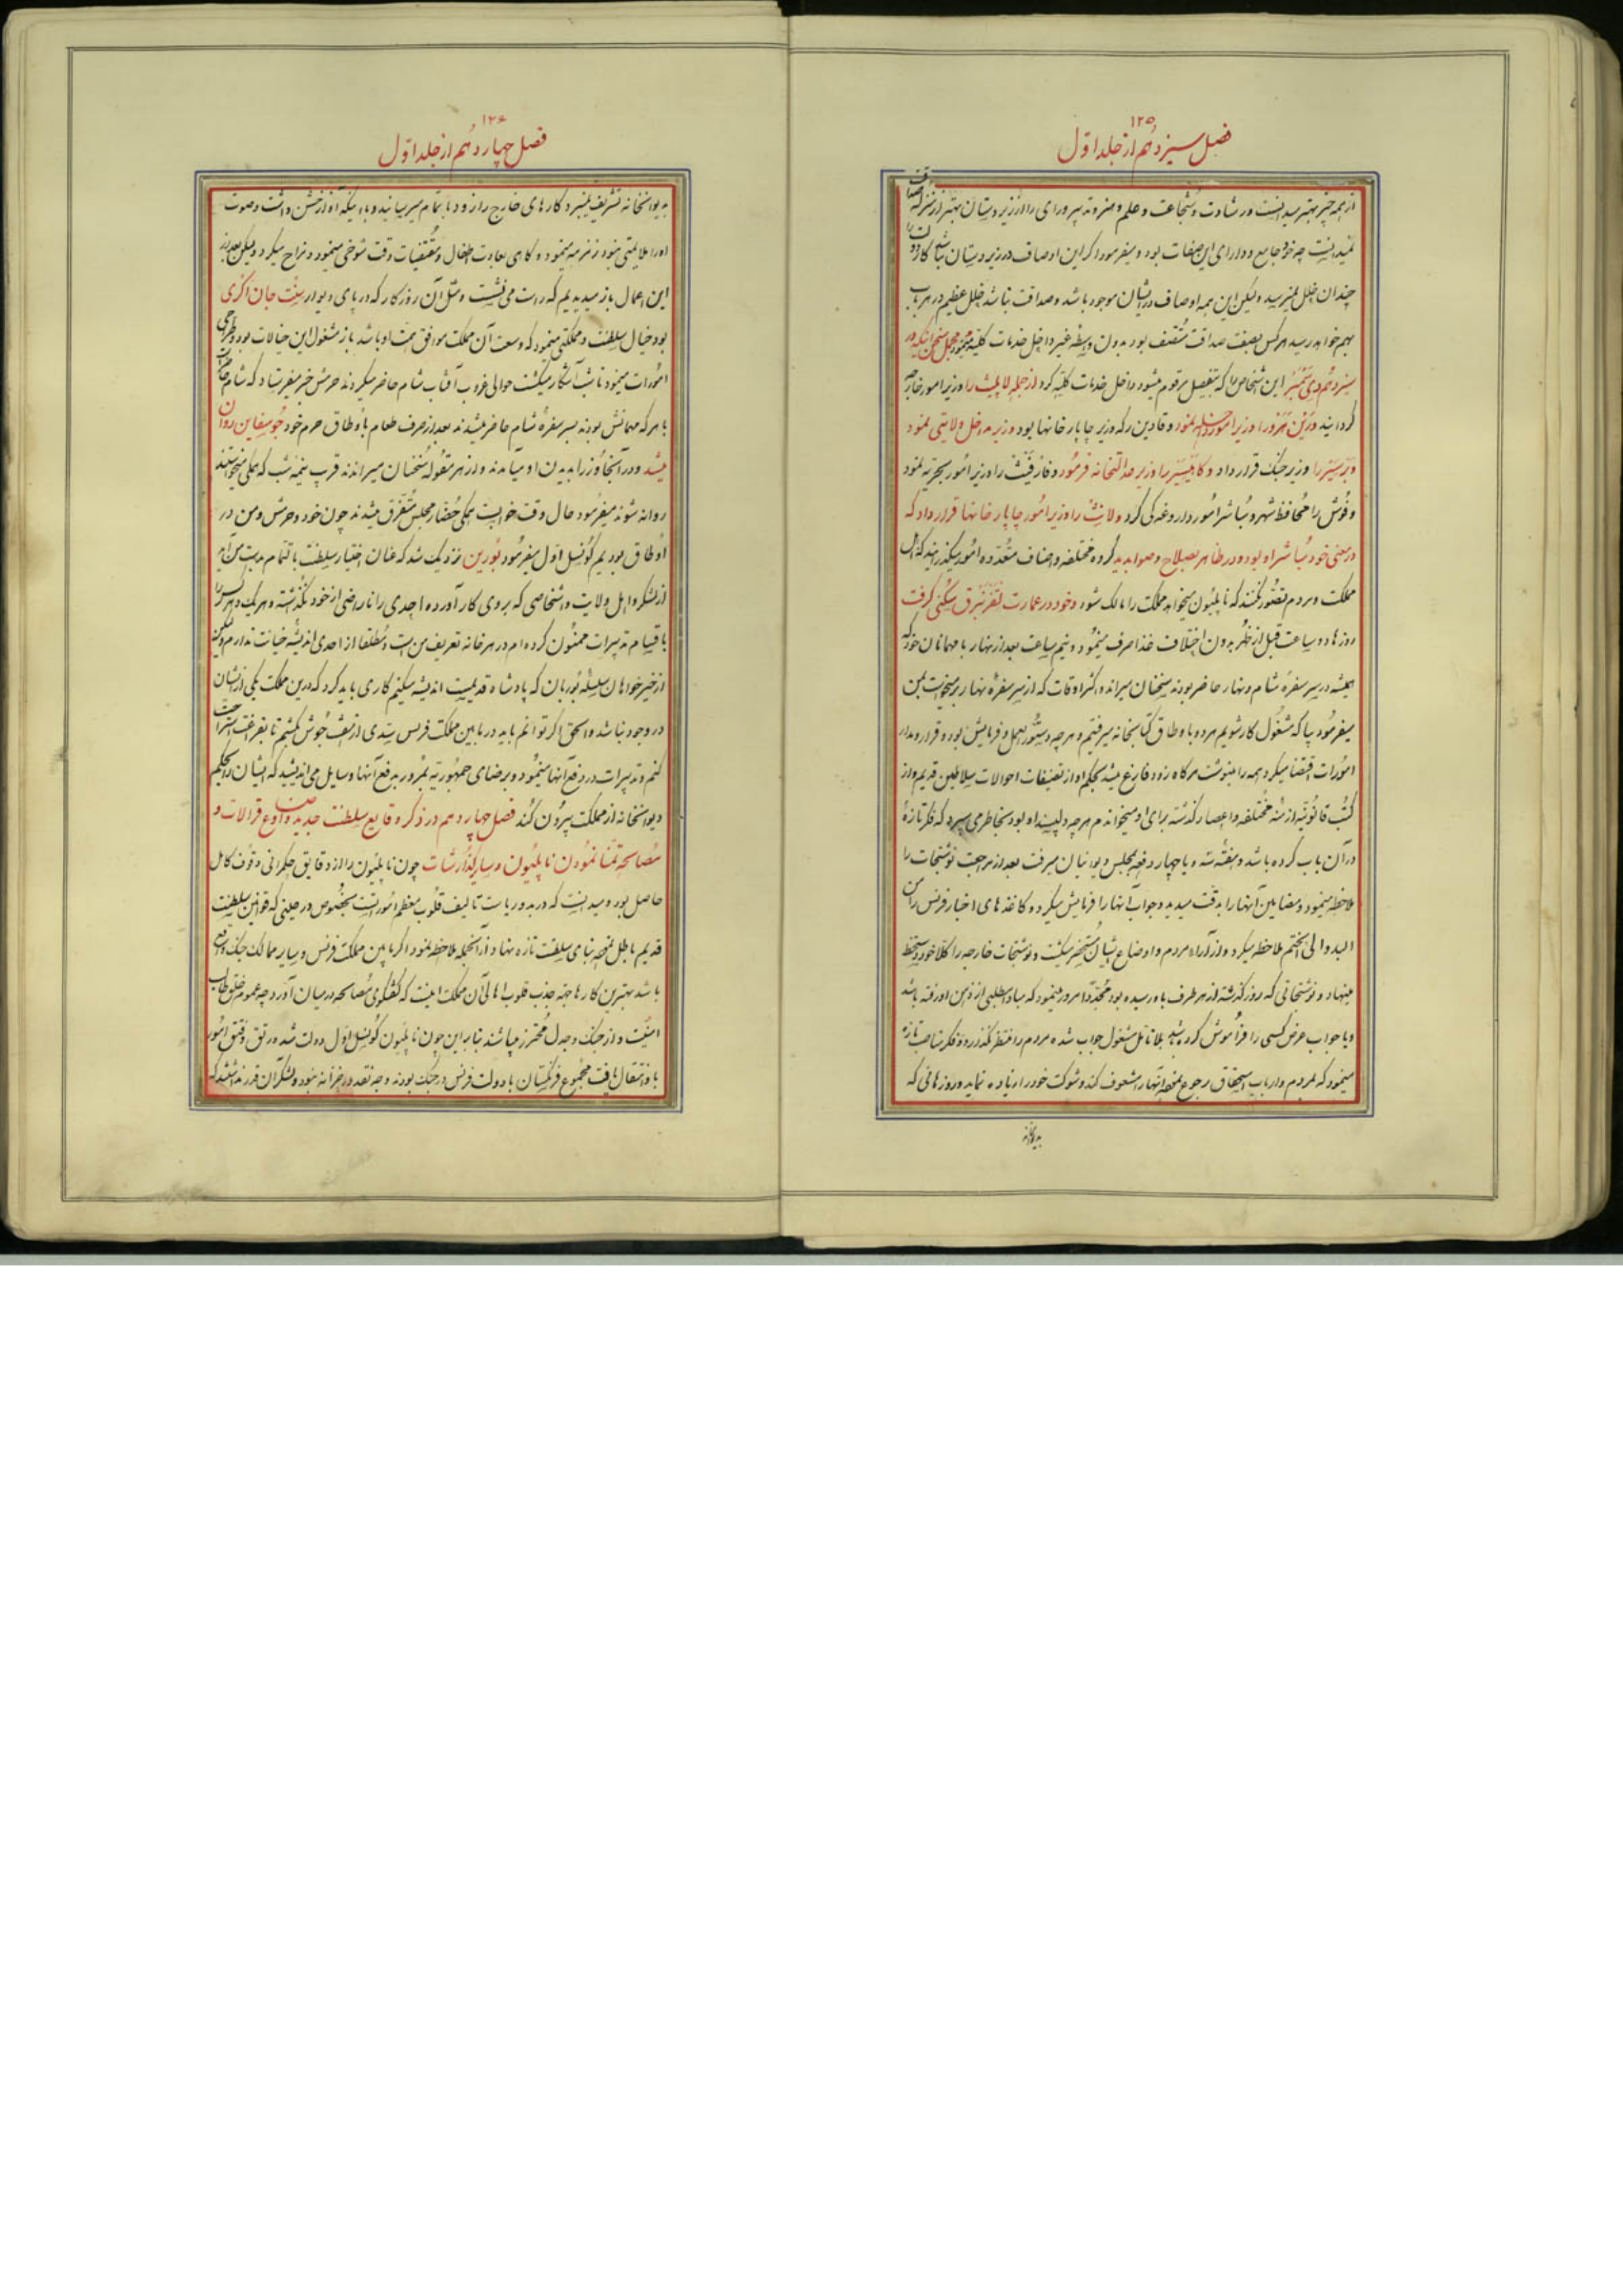 ۱۲۵
فصل سیزدهم از جلد اوّل
از همه چیز بهتر میدانست ورشادت و شجاعت و علم و هنر و تدبیر و رای را از زیردستان بهتر از
نمیدانست چه خود جامع و دارای این صفات بود و میفرمود اگر این اوصاف در زیردستان نباشد کار دولت را
چندان خلل نمیرسد ولیکن این همه اوصاف در ایشان موجود باشد و صداقت نباشد خلل عظیم در هر باب
بهم خواهد رسید هر کس بصفت صداقت متّصف بود بدون واسطه غیر داخل خدمات کلیّه
سیزدهم دی این اشخاص را که بتفصیل مرقوم میشود داخل خدمات کلیّه کرد از جمله لاپلیث را وزیر امور خارجه
گردانید وزیر امور نمود و که وزیر چاپارخانها بود وزیر مداخل ولایتی نمود
را وزیر جنگ قرار داد و را وزیر عدالتخانه فرمود و را وزیر امور بحریّه نمود
و فوش را محافظ شهر و مباشر امور داروغه کی کرد و را وزیر امور چاپارخانها قرار داد که
در معنی خود مباشر او بود و در ظاهر بصلاح و صوابدید گروه مختلفه و اصناف متعدّده امور میگذرانید که اهل
مملکت و مردم تصوّر نکنند که ناپلیون میخواهد مملکت را مالک شود و خود در عمارت سکنی گرفت
روزها دو ساعت قبل از ظهر بدون اختلاف غذا صرف مینمود و نیم ساعت بعد از نهار با مهمانان خود که
همیشه در سر سفرهٔ شام و نهار حاضر بودند سخنان میراند و اکثر اوقات که از سر سفرهٔ نهار برمیخواست بمن
میفرمود بیا که مشغول کار شویم هر دو با وطاق کتابخانه میرفتیم و هر چه دستور العمل و فرمایش بود و قرار و مدار
امورات اقتضا میکرد همه را مینوشت هر گاه زود فارغ میشد بحکم او از تصنیفات احوالات سلاطین قدیم و از
کتب قانونیّه ازمنه مختلفه و اعصار گذشته برای او میخواندم هر چه دلپسند او بود بخاطر می سپرد که فکر تازهٔ
در آن باب کرده باشد و هفته سه و یا چهار دفعه بمجلس دیوانیان میرفت بعد از مراجعت نوشتجات را
ملاحظه مینمود و مضامین آنها را بدقّت میدید و جواب آنها را فرمایش میکرد و کاغذهای اخبار فرنس را من
البدو الی الختم ملاحظه میکرد و از آراء مردم و اوضاع ایشان مستحضر میگشت و نوشتجات خارجه را کلا خود دستخط
مینهاد و نوشتجاتی که روز گذشته از هر طرف باو رسیده بود مجدّدا مرور مینمود که مبادا مطلبی از ذهن او رفته باشد
و یا جواب عرض کسی را فراموش کرده باشد بلا تأمل مشغول جواب شده مردم را منتظر نگذارد و فکر مناصب تازه
مینمود که بمردم و ارباب استحقاق رجوع نموده آنها را مشعوف کند و شوکت خود را زیاده نماید و روزهائی که
بدیوانخانه
۱۲۶
فصل چهاردهم از جلد اوّل
بدیوانخانه تشریف نمیبرد کارهای خارج را زود باتمام میرسانید و با اینکه آواز خشن داشت و صوت
او را ملایمتی نبود زمزمه مینمود و گاهی بعادت اطفال و مقتضیات وقت شوخی مینمود و مزاح میکرد ولیکن بعد از
این اعمال باز میدیدیم که راست می نشست و مثل آن روزگار که در پای دیوار سنت جان اکری
بود خیال سلطنت و مملکتی مینمود که وسعت آن مملکت موافق همّت او باشد باز مشغول این خیالات بود و طرّاحی
امورات مینمود تا شب آشکار میگشت حوالی غروب آفتاب شام حاضر میکردند حرمش خبر میفرستاد که شام حاضر است
با هر که مهمانش بودند بسر سفرهٔ شام حاضر میشدند بعد از صرف طعام با وطاق حرم خود جوسفاین روان
میشد و در آنجا وزرا بدیدن او میآمدند و از هر مقوله سخنان میراندند قرب نیمه شب که همگی میخواستند
روانه شوند میفرمود حال وقت خوابست همگی حضّار مجلس متفرّق میشدند چون خود و حرمش و من در
اوطاق بودیم کونسل اوّل میفرمود بورین نزدیک شد که عنان اختیار سلطنت باتمام بدست من آید
از لشکر و اهل ولایت و اشخاصی که بروی کار آورده احدی را ناراضی از خود نگذاشته و هر یک و هر کس را
باقسام تدبیرات ممنون کرده ام در هر خانه تعریف من است و مطلقا از احدی اندیشه خیانت ندارم مگر
از خیرخواهان سلسلهٔ بوربان که پادشاه قدیمیست اندیشه میکنم کاری باید کرد که درین مملکت یکی از ایشان
در وجود نباشد و الحق اگر توانم باید در مابین مملکت فرنس سدّی از کشم تا بفراغت استراحت
کنم و تدبیرات در دفع آنها مینمود و برضای جمهوریّه بمرور بدفع آنها وسایل می اندیشید که ایشان را بحکم
دیوانخانه از مملکت بیرون کند فصل چهاردهم در ذکر وقایع سلطنت جدید و اوضاع قرالات و
مصالحه تمنّا نمودن ناپلیون و سایر گذارشات چون ناپلیون را از دقایق حکمرانی وقوف کامل
حاصل بود و میدانست که در بدو ریاست تالیف قلوب معظم امور است بخصوص در حینی که قوانین سلطنت
قدیم باطل نموده بنای سلطنت تازه نهاد و از آنجمله ملاحظه نمود اگر مابین مملکت فرنس و سایر ممالک جنگ واقع
باشد بهترین کارها جهة جذب قلوب اهالی آن مملکت اینست که گفتگوی مصالحه در میان آورد چه عموم خلق طالب
امنیّت و از جنگ و جدل محترز میباشند بنابراین چون ناپلیون کونسل اوّل دولت شد و رتق و فتق امور
باو انتقال یافت مجموع فرنگستان با دولت فرنس در جنگ بودند وجه نقد در خزانه نبود و لشکر آن قدر نداشتند که